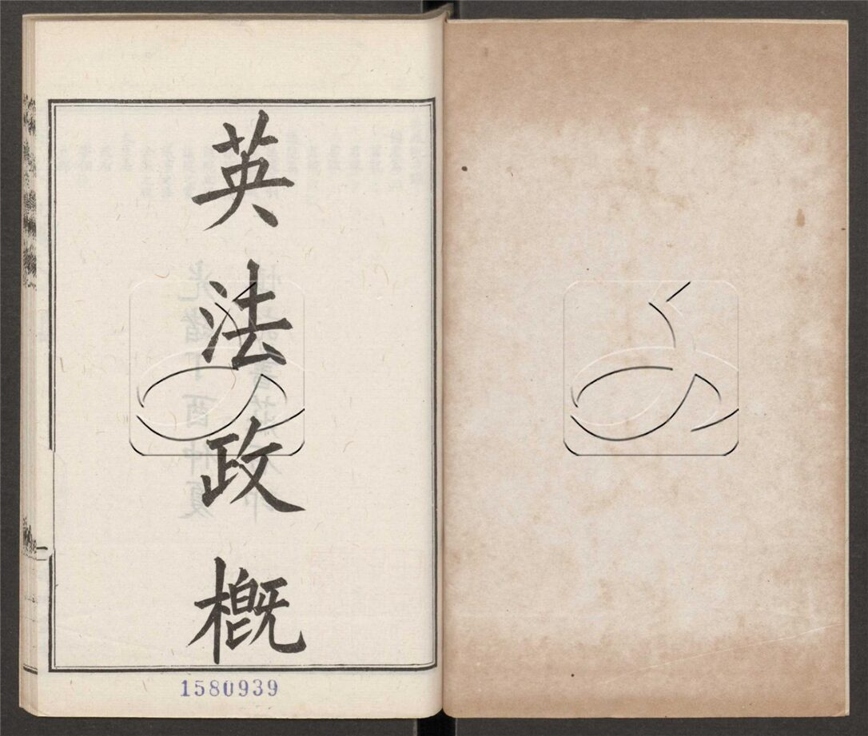 英法政概
1580939